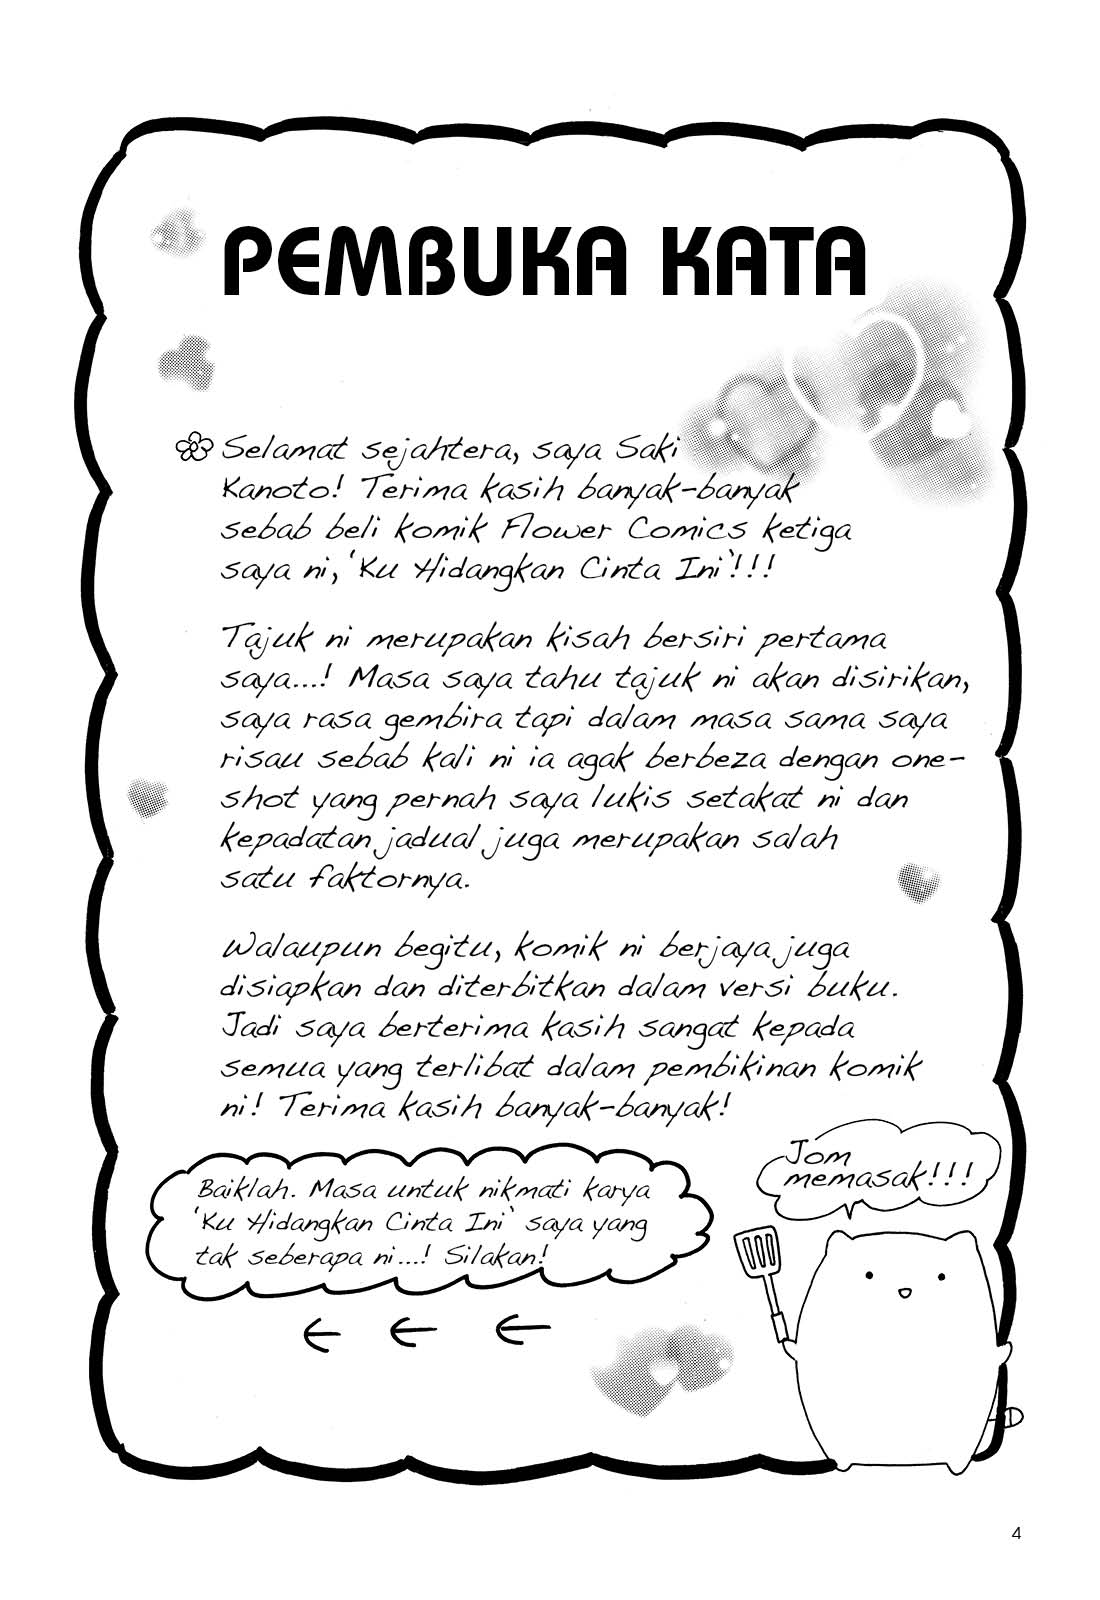 PEMBUKA KATA
Selamat sejahtera, saya Saki
Kanoto! Terima kasih banyak-banyak
sebab beli komik Flower Comics ketiga
saya ni, 'Ku Hidangkan Cinta Ini'!!!
Tajuk ni merupakan kisah bersiri pertama
saya...! Masa saya tahu tajuk ni akan disirikan,
saya rasa gembira tapi dalam masa sama saya
risau sebab kali ni ia agak berbeza dengan one-
shot yang pernah saya lukis setakat ni dan
kepadatan jadual juga merupakan salah
satu faktornya.
Walaupun begitu, komik ni berjaya juga
disiapkan dan diterbitkan dalam versi buku.
Jadi saya berterima kasih sangat kepada
semua yang terlibat dalam pembikinan komik
ni! Terima kasih banyak-banyak!
Jom
memasak!!!
Baiklah. Masa untuk nikmati karya
'Ku Hidangkan Cinta Ini' saya yang
tak seberapa ni...! Silakan!
4